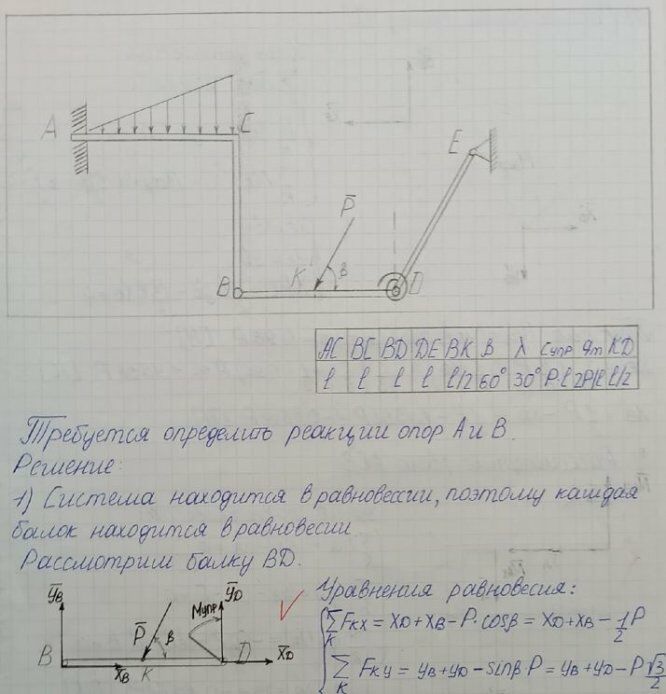 A
C
E
P̅
K
β
B
D
AC BC BD DE BK B λ Cупр qm KD
l l l l l/2 60° 30° P·l 2P/l l/2
Требуется определить реакции опор A и B.
Решение:
1) Система находится в равновессии, поэтому каждая
балок находится в равновесии
Рассмотрим балку BD.
Уравнения равновесия:
Y̅B
P̅
β
Mупр
Y̅D
B
X̅B
K
D
X̅D
∑ FKX = XD + XB − P·cosβ = XD + XB − 1/2 P
K
∑ FKY = YB + YD − sinβ P = YB + YD − P √3/2
K